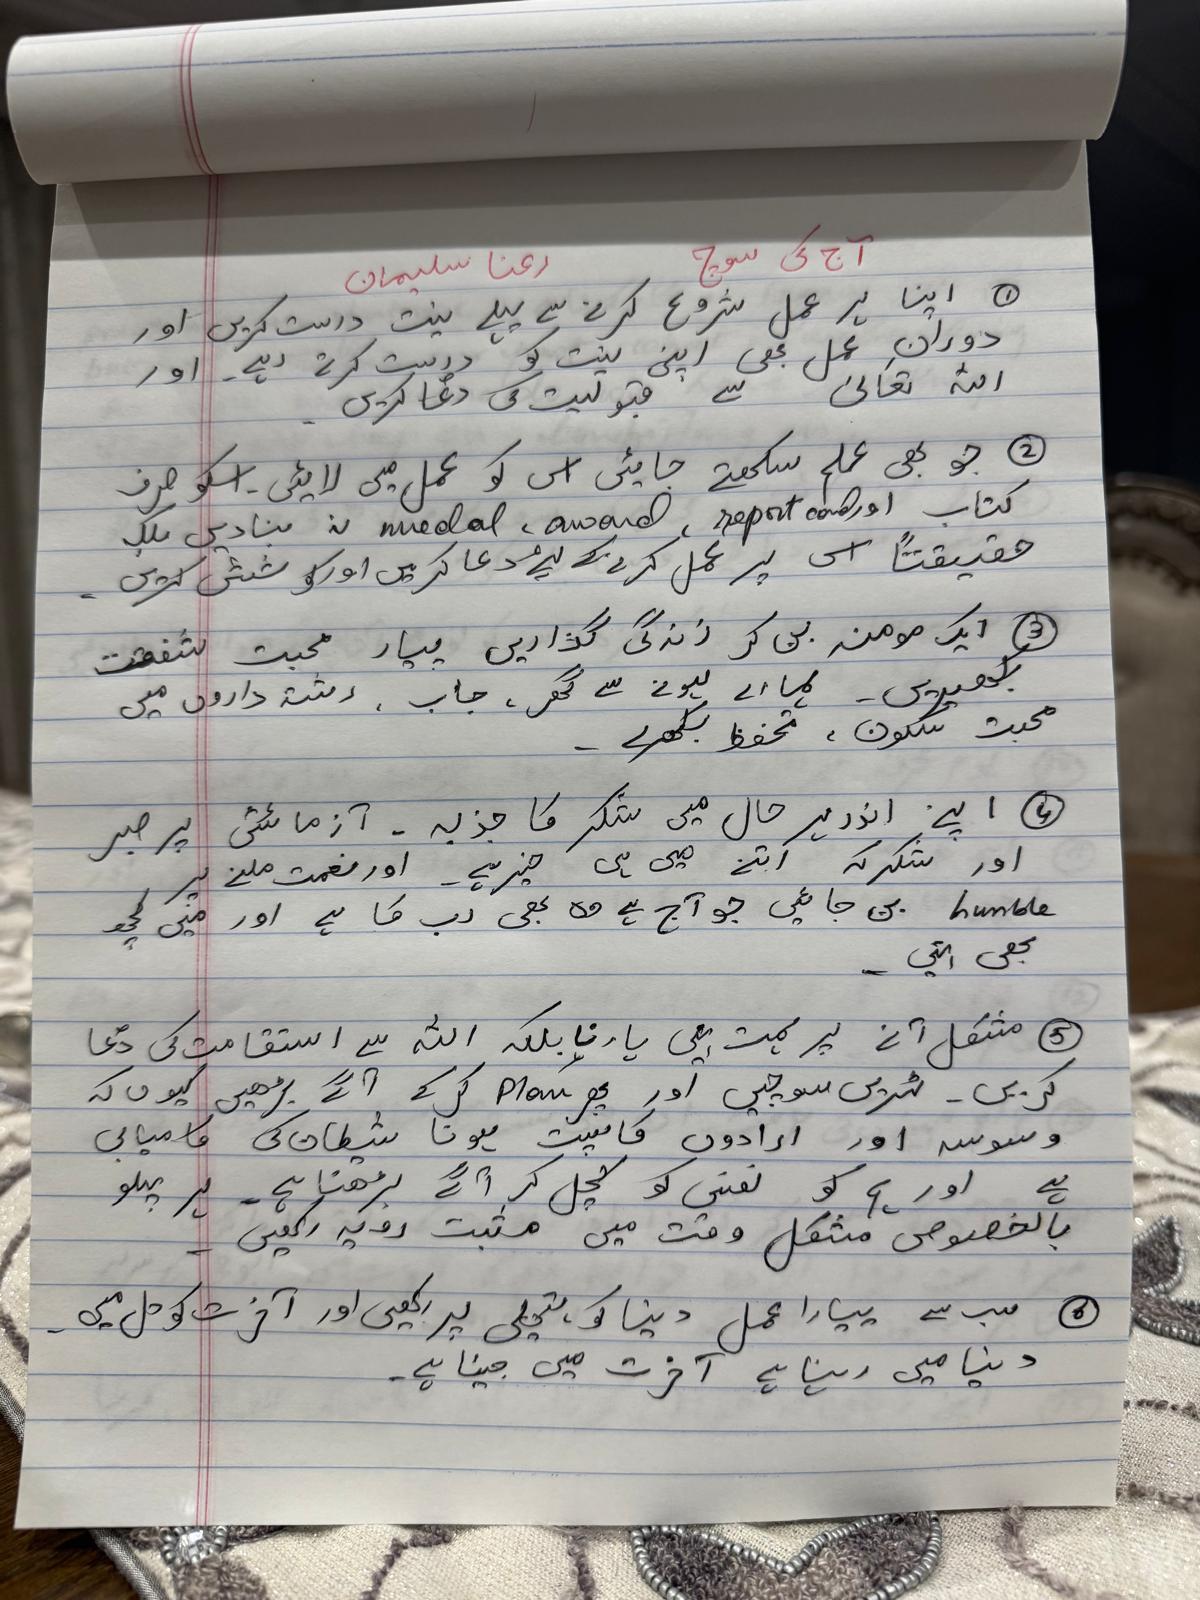 آج کی سوچ رعنا سلیمان
① اپنا ہر عمل شروع کرنے سے پہلے نیت درست کریں اور
دوران عمل بھی اپنی نیت کو درست کرتے رہے۔ اور
اللہ تعالیٰ سے قبولیت کی دعا کریں۔
② جو بھی علم سکھتے جائیں اس کو عمل میں لائیں۔ اسکو صرف
کتاب اور report card، award، medal نہ بنادیں بلکہ
حقیقتاً اس پر عمل کرنے کے لیے دعا کریں اور کوشش کریں۔
③ ایک مومنہ بن کر زندگی گذاریں پیار محبت شفقت
بکھیریں۔ ہمارے ہونے سے گھر، جاب، رشتہ داروں میں
محبت سکون، تحفظ بکھرے۔
④ اپنے اندر ہر حال میں شکر کا جذبہ۔ آزمائش پر صبر
اور شکر کہ اتنے میں ہی خیر ہے۔ اور نعمت ملنے پر
humble بن جائیں جو آج ہے وہ بھی رب کا ہے اور میں کچھ
بھی نہیں۔
⑤ مشکل آنے پر ہمت نہیں ہارنا بلکہ اللہ سے استقامت کی دعا
کریں۔ سوچیں اور پھر Plan کر کے آگے بڑھیں کیوں کہ
وسوسہ اور ارادوں کا پست ہونا شیطان کی کامیابی
ہے اور ہم کو نفس کو کچل کر آگے بڑھنا ہے۔ ہر پہلو
بالخصوص مشکل وقت میں مثبت رویہ رکھیں۔
⑥ سب سے پیارا عمل دنیا کو ہتھیلی پر رکھیں اور آخرت کو دل میں۔
دنیا میں رہنا ہے آخرت میں جینا ہے۔